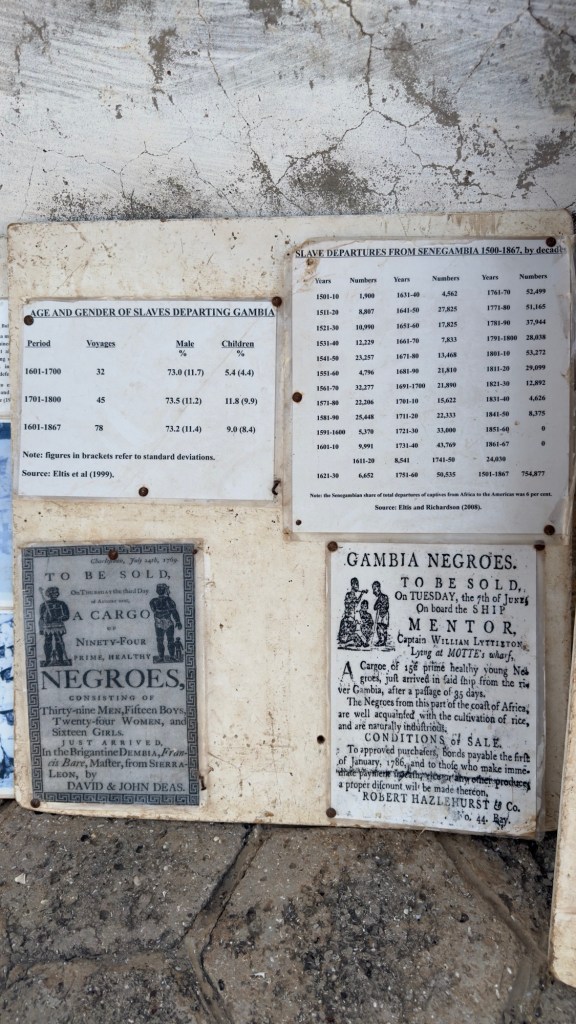 AGE AND GENDER OF SLAVES DEPARTING GAMBIA
Period Voyages Male Children
% %
1601-1700 32 73.0 (11.7) 5.4 (4.4)
1701-1800 45 73.5 (11.2) 11.8 (9.9)
1601-1867 78 73.2 (11.4) 9.0 (8.4)
Note: figures in brackets refer to standard deviations.
Source: Eltis et al (1999).
SLAVE DEPARTURES FROM SENEGAMBIA 1500-1867, by decade
Years Numbers Years Numbers Years Numbers
1501-10 1,900 1631-40 4,562 1761-70 52,499
1511-20 8,807 1641-50 27,825 1771-80 51,165
1521-30 10,990 1651-60 17,825 1781-90 37,944
1531-40 12,229 1661-70 7,833 1791-1800 28,038
1541-50 23,257 1671-80 13,468 1801-10 53,272
1551-60 4,796 1681-90 21,810 1811-20 29,099
1561-70 32,277 1691-1700 21,890 1821-30 12,892
1571-80 22,206 1701-10 15,622 1831-40 4,626
1581-90 25,448 1711-20 22,333 1841-50 8,375
1591-1600 5,370 1721-30 33,000 1851-60 0
1601-10 9,991 1731-40 43,769 1861-67 0
1611-20 8,541 1741-50 24,030
1621-30 6,652 1751-60 50,535 1501-1867 754,877
Note: the Senegambian share of total departures of captives from Africa to the Americas was 6 per cent.
Source: Eltis and Richardson (2008).
Charlestown, July 24th, 1769.
TO BE SOLD,
On THURSDAY the third Day
of AUGUST next,
A CARGO
OF
NINETY-FOUR
PRIME, HEALTHY
NEGROES,
CONSISTING OF
Thirty-nine MEN, Fifteen BOYS,
Twenty-four WOMEN, and
Sixteen GIRLS.
JUST ARRIVED,
In the Brigantine DEMBIA, Francis Bare, Master, from SIERRA-
LEON, by
DAVID & JOHN DEAS.
GAMBIA NEGROES.
TO BE SOLD,
On TUESDAY, the 7th of JUNE,
On board the SHIP
MENTOR,
Captain WILLIAM LYTTLETON,
Lying at MOTTE's wharf,
A Cargoe of 152 prime healthy young Ne-
groes, just arrived in said ship from the ri-
ver Gambia, after a passage of 35 days.
The Negroes from this part of the coast of Africa,
are well acquainted with the cultivation of rice,
and are naturally industrious.
CONDITIONS of SALE.
To approved purchasers, bonds payable the first
of January, 1786, and to those who make imme-
diate payment in cash, rice, or any other produce,
a proper discount will be made thereon.
ROBERT HAZLEHURST & Co.
No. 44. Bay.